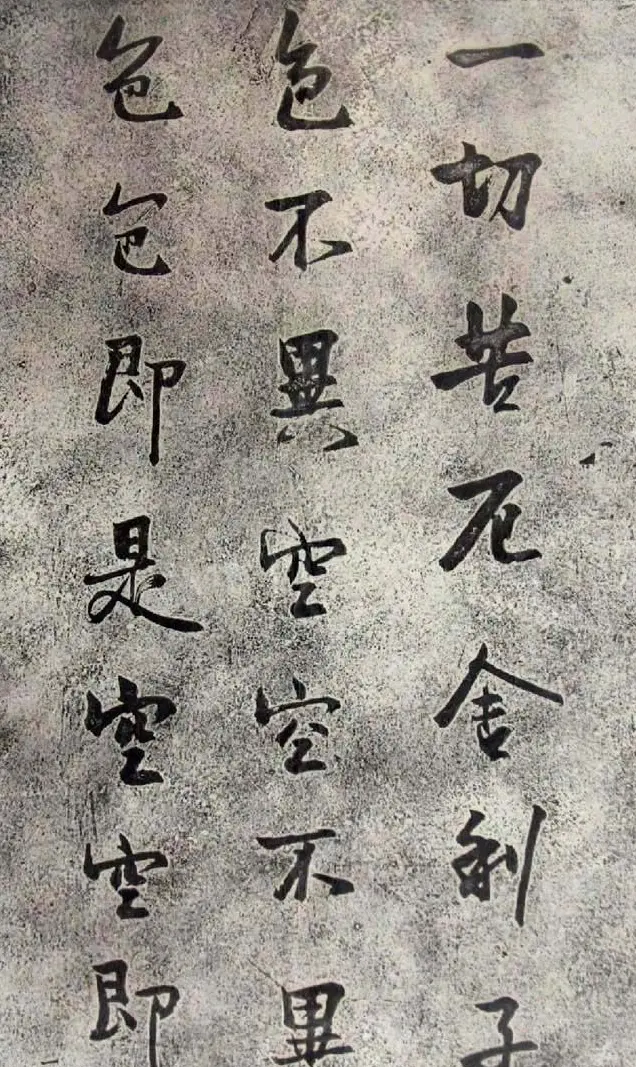 一切苦厄舍利子
色不異空空不異
色色即是空空即